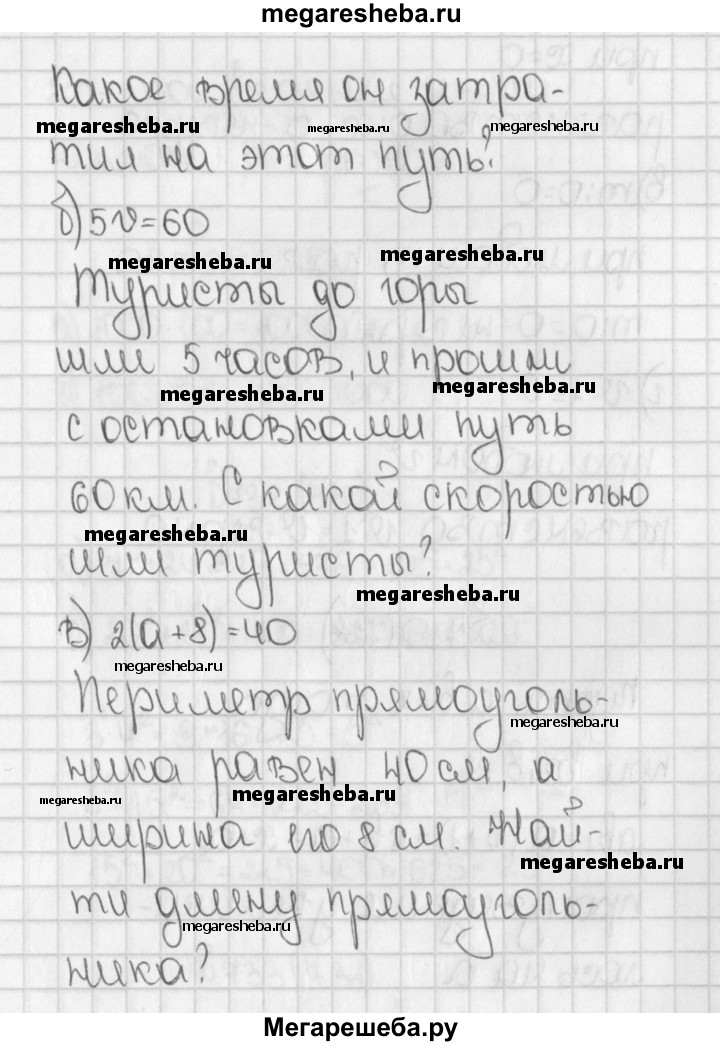 megaresheba.ru
Какое время он затра-
megaresheba.ru megaresheba.ru megaresheba.ru
тил на этот путь?
б) 5v=60
megaresheba.ru megaresheba.ru
Туристы до горы
шли 5 часов, и прошли
megaresheba.ru megaresheba.ru
с остановками путь
60 км. С какой скоростью
megaresheba.ru
шли туристы?
megaresheba.ru
в) 2(a+8)=40
megaresheba.ru
Периметр прямоуголь-
megaresheba.ru
ника равен 40 см, а
megaresheba.ru megaresheba.ru
ширина его 8 см. Най-
megaresheba.ru
ти длину прямоуголь-
megaresheba.ru
ника?
Мегарешеба.ру